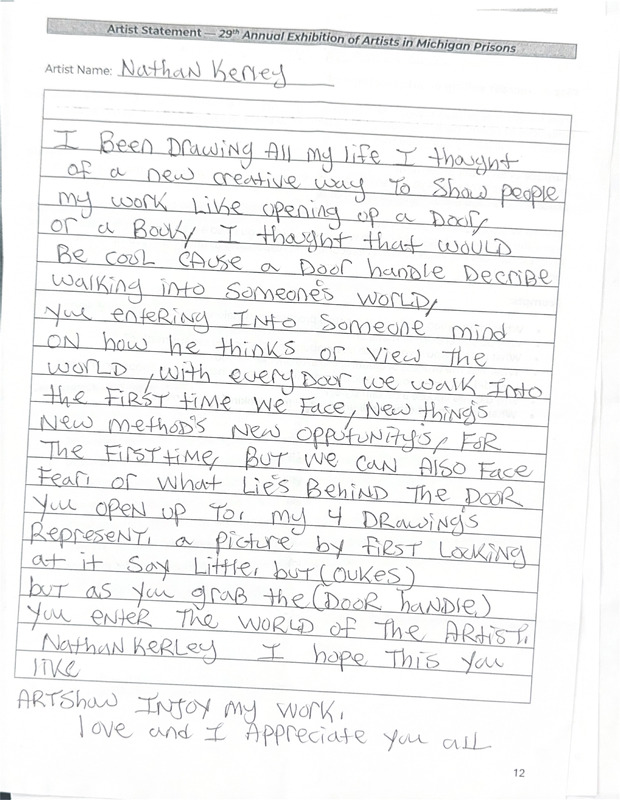 Artist Statement — 29th Annual Exhibition of Artists in Michigan Prisons
Artist Name: Nathan Kerley
I Been Drawing All my life I thought
of a new creative way To Show people
my work Like opening up a Door,
or a Book, I thought that WOULD
Be cool cAuse a Door handle Decribe
walking into Someone's WORLD,
You entering INTO Someone mind
ON how he thinks or View The
WORLD, with every Door we walk Into
the FIRST time We Face, New thing's
New method's New opputunity's, FOR
The First time, BUT We CAN Also Face
Fear, or What Lie's Behind The DOOR
You OPEN UP To, my 4 DRAWing's
Represent, a picture by FIRST Looking
at it Say Little, but
but as you grab the (Door handle)
You enter The WORLD of The ARtist,
Nathan Kerley I hope This You
like
ARTShow InJoy my work,
love and I Appreciate You all
12